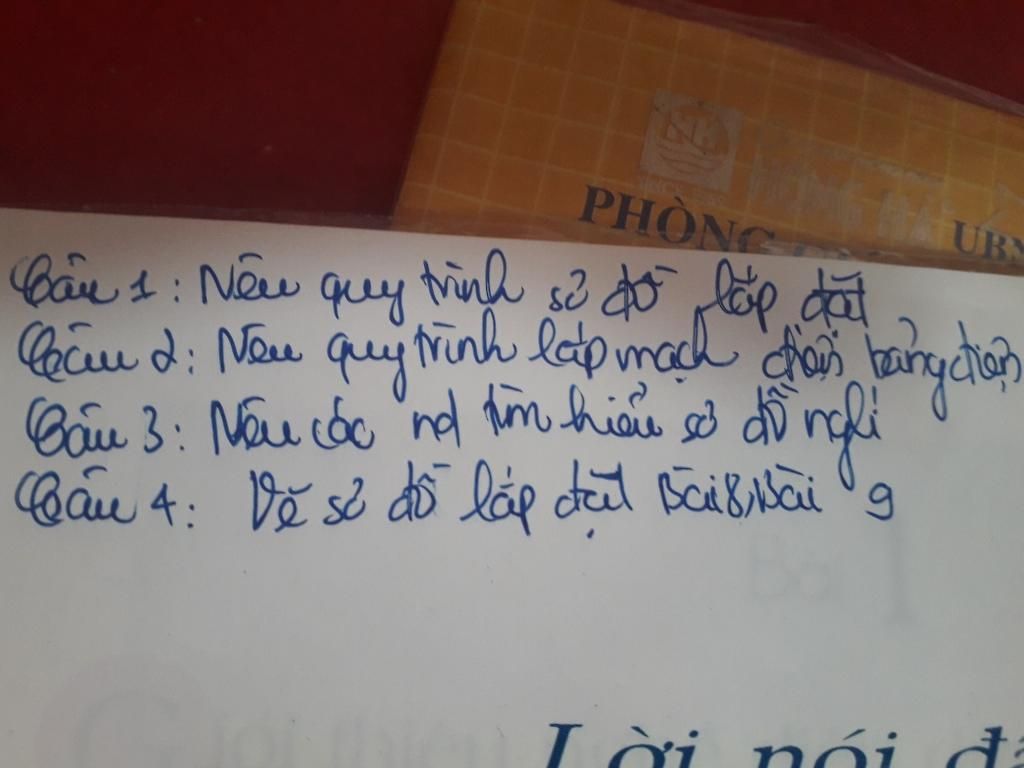 PHÒNG
UBN
Câu 1: Nêu quy trình sơ đồ lắp đặt
Câu 2: Nêu quy trình lắp mạch điện bảng điện
Câu 3: Nêu các nd tìm hiểu sơ đồ ngli
Câu 4: Vẽ sơ đồ lắp đặt Bài 8, Bài 9
Lời nói đ